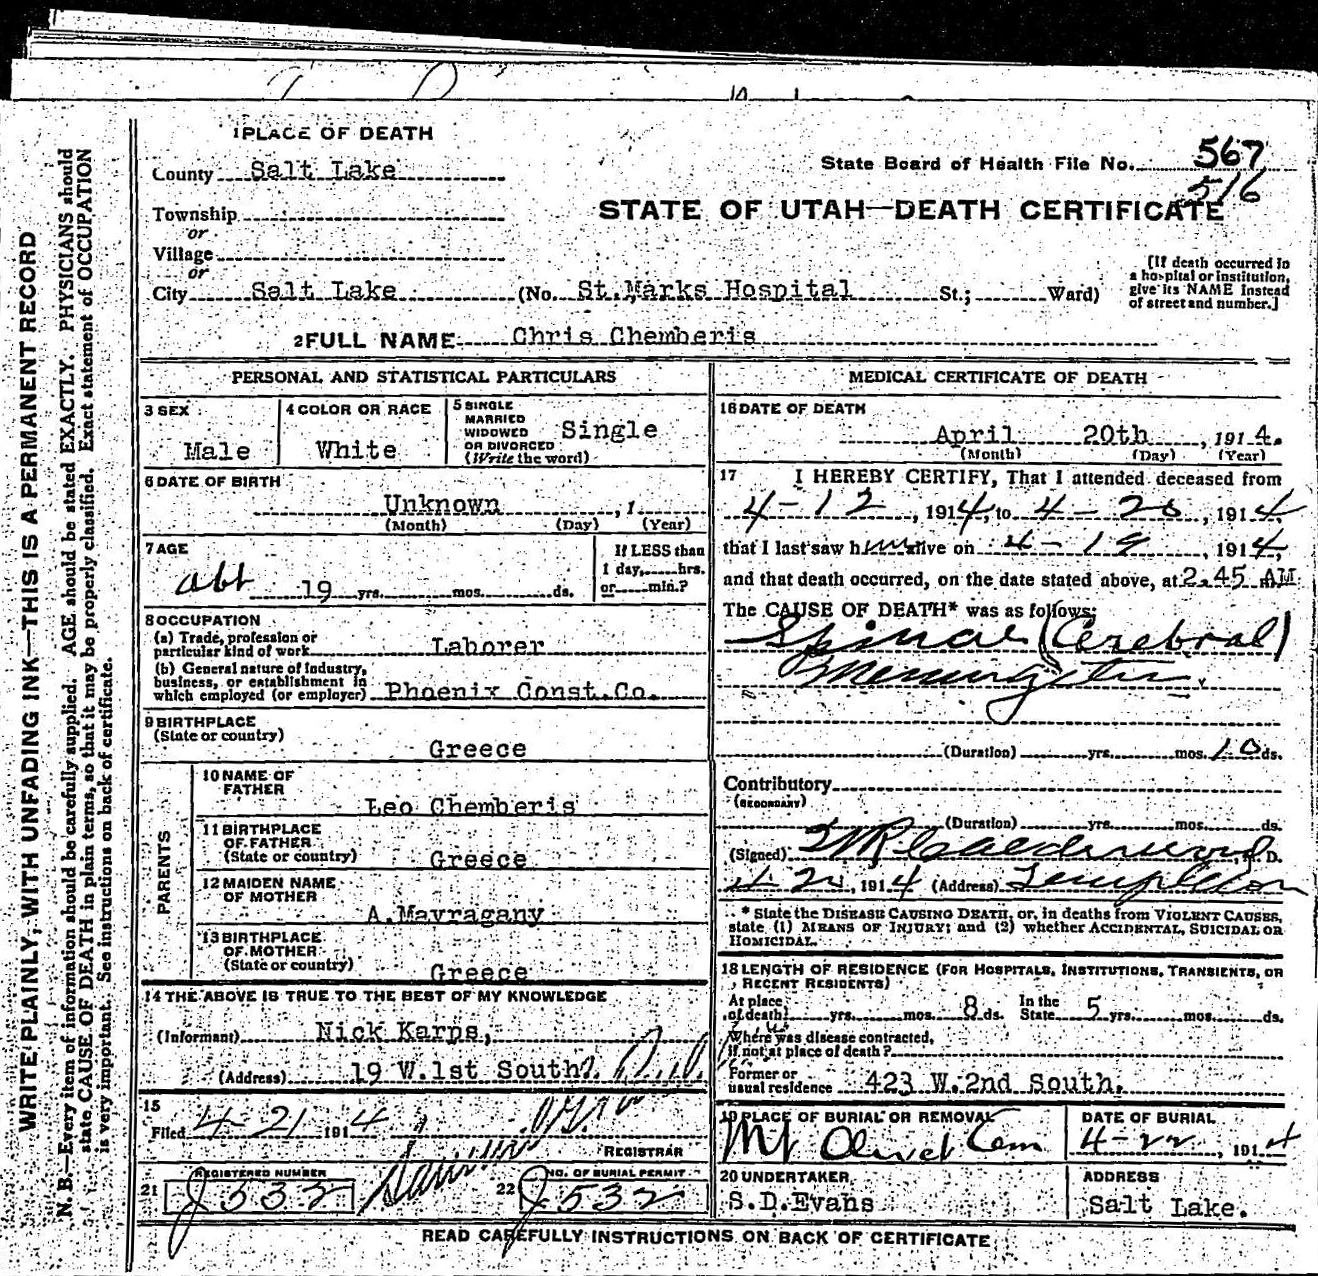 1 PLACE OF DEATH
County Salt Lake
State Board of Health File No. 567
516
Township
or
STATE OF UTAH—DEATH CERTIFICATE
Village
or
City Salt Lake (No. St. Marks Hospital St.; Ward)
[If death occurred in
a hospital or institution,
give its NAME instead
of street and number.]
2 FULL NAME Chris Chemberis
PERSONAL AND STATISTICAL PARTICULARS
3 SEX
Male
4 COLOR OR RACE
White
5 SINGLE
MARRIED
WIDOWED
OR DIVORCED
(Write the word)
Single
6 DATE OF BIRTH
Unknown , 1
(Month) (Day) (Year)
7 AGE
abt 19 yrs. mos. ds.
If LESS than
1 day, hrs.
or min.?
8 OCCUPATION
(a) Trade, profession or
particular kind of work Laborer
(b) General nature of industry,
business, or establishment in
which employed (or employer) Phoenix Const. Co.
9 BIRTHPLACE
(State or country)
Greece
PARENTS
10 NAME OF
FATHER
Leo Chemberis
11 BIRTHPLACE
OF FATHER
(State or country) Greece
12 MAIDEN NAME
OF MOTHER
A. Mavragany
13 BIRTHPLACE
OF MOTHER
(State or country) Greece
14 THE ABOVE IS TRUE TO THE BEST OF MY KNOWLEDGE
(Informant) Nick Karps,
(Address) 19 W. 1st South
15
Filed 4-21 1914
REGISTRAR
REGISTERED NUMBER
21 J 532
NO. OF BURIAL PERMIT
22 J 532
MEDICAL CERTIFICATE OF DEATH
16 DATE OF DEATH
April 20th , 1914.
(Month) (Day) (Year)
17 I HEREBY CERTIFY, That I attended deceased from
4-12 , 1914, to 4-20 , 1914,
that I last saw him alive on 4-19 , 1914,
and that death occurred, on the date stated above, at 2.45 AM
The CAUSE OF DEATH* was as follows:
Spinal (Cerebral)
Meningitis.
(Duration) yrs. mos. 10 ds.
Contributory
(SECONDARY)
(Duration) yrs. mos. ds.
(Signed) Calderwood, M. D.
4-20, 1914 (Address) Templeton
* State the DISEASE CAUSING DEATH, or, in deaths from VIOLENT CAUSES,
state (1) MEANS OF INJURY; and (2) whether ACCIDENTAL, SUICIDAL OR
HOMICIDAL.
18 LENGTH OF RESIDENCE (FOR HOSPITALS, INSTITUTIONS, TRANSIENTS, OR
RECENT RESIDENTS)
At place
of death yrs. mos. 8 ds. In the
State 5 yrs. mos. ds.
Where was disease contracted,
if not at place of death?
Former or
usual residence 423 W. 2nd South.
19 PLACE OF BURIAL OR REMOVAL
Mt Olivet Cem
DATE OF BURIAL
4-22 , 1914
20 UNDERTAKER
S.D. Evans
ADDRESS
Salt Lake.
READ CAREFULLY INSTRUCTIONS ON BACK OF CERTIFICATE
WRITE PLAINLY, WITH UNFADING INK—THIS IS A PERMANENT RECORD
N. B.—Every item of information should be carefully supplied. AGE should be stated EXACTLY. PHYSICIANS should
state CAUSE OF DEATH in plain terms, so that it may be properly classified. Exact statement of OCCUPATION
is very important. See instructions on back of certificate.